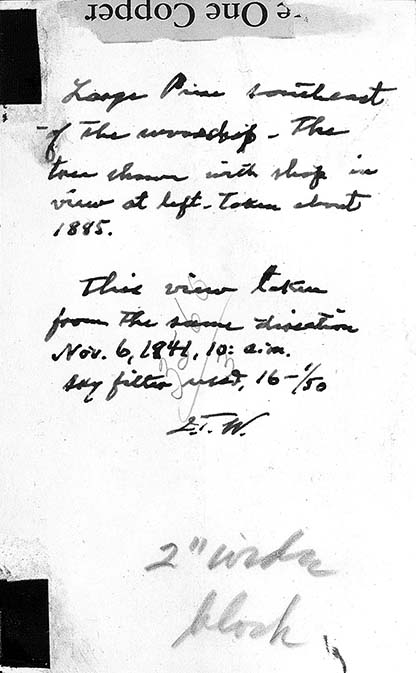 e One Copper
Large Pine southeast
of the woodship - The
tree shown with shop in
view at left - Taken about
1885.
This view taken
from the same direction
Nov. 6, 1841, 10: a.m.
sky filter used, 16 - 1/50
L.T.W.
2" wide
block